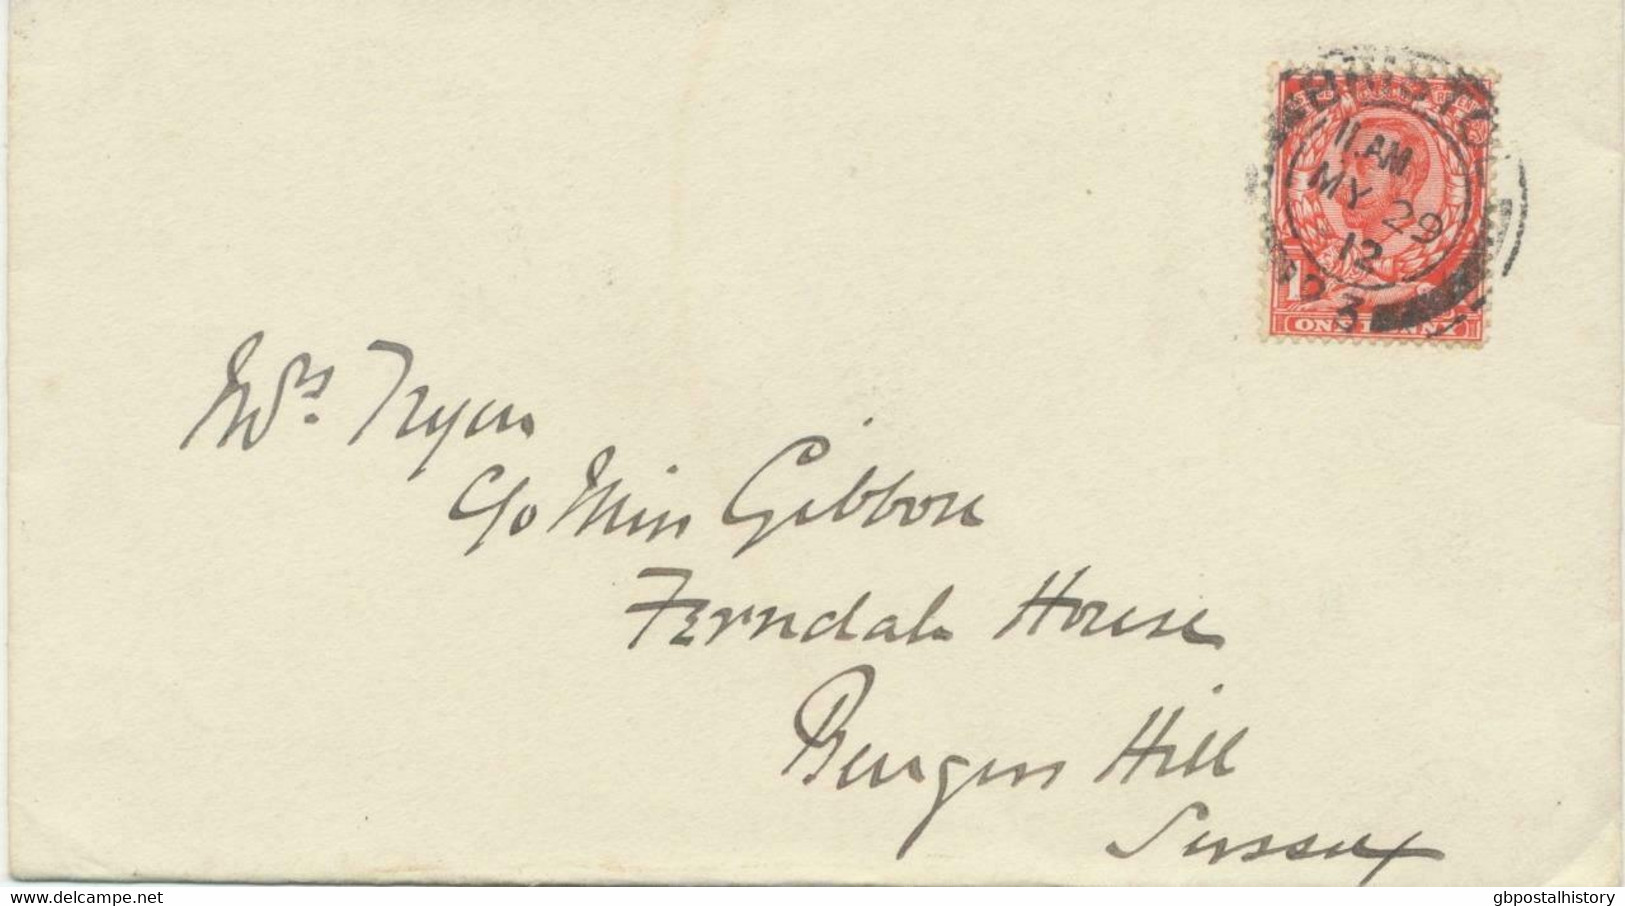 BRISTO
11.AM
MY 29
12
1
ONE PENNY
Mrs. Tryon
C/o Miss Gibbon
Ferndale House
Burgess Hill
Sussex
delcampe.net
gbpostalhistory